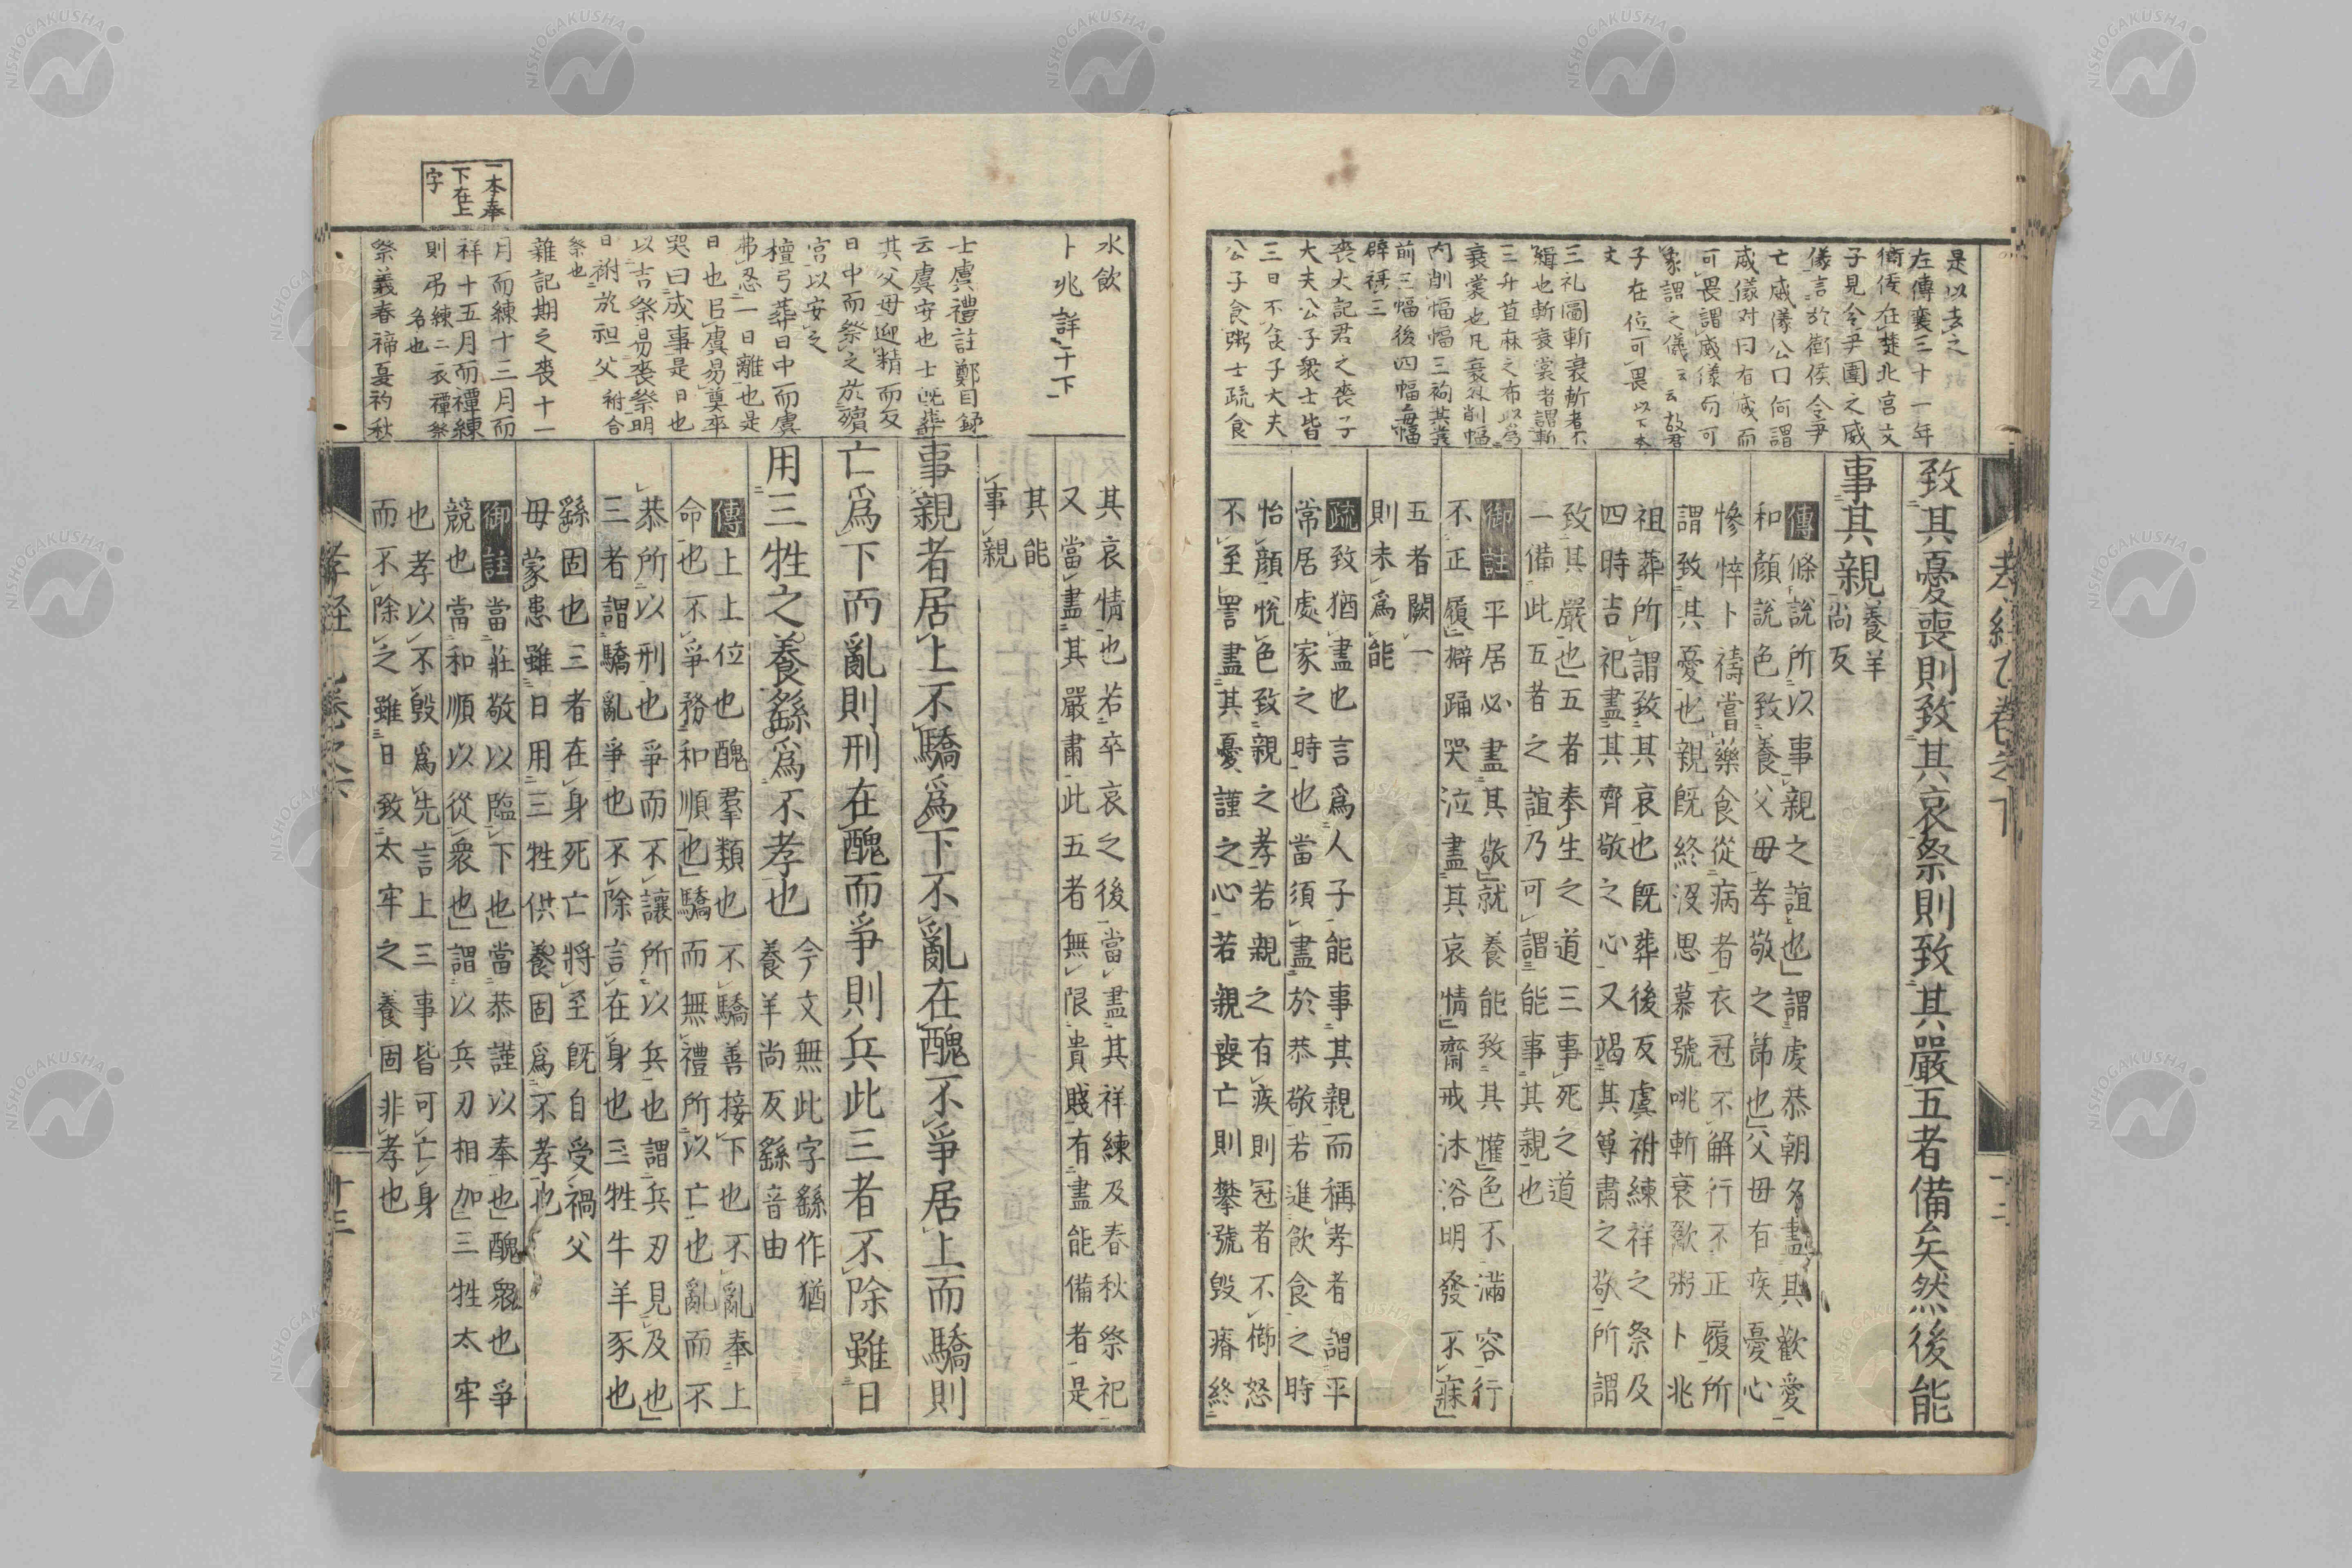 是以去之
左傳襄三十一年
衛侯在楚北宮文
子見令尹圍之威
儀言於衛侯令尹
亡威儀公曰何謂
威儀対曰有威而
可畏謂威儀有可
象謂之儀云云故君
子在位可畏以下本
文
三礼圖斬衰斬者不
緝也斬衰裳者謂斬
三升苴麻之布以爲
衰裳也凡衰外削幅
内削幅幅三袧其裳
前三幅後四幅毎幅
辟積三
喪大記君之喪子
大夫公子衆士皆
三日不食子大夫
公子食粥士疏食
致其憂喪則致其哀祭則致其嚴五者備矣然後能
事其親
養羊
尚反
傳條說所以事親之誼也謂虔恭朝夕盡其歡愛
和顏說色致養父毋孝敬之節也父毋有疾憂心
慘悴卜禱嘗藥食從病者衣冠不解行不正履所
謂致其憂也親旣終沒思慕號咷斬衰歠粥卜兆
祖葬所謂致其哀也旣葬後反虞祔練祥之祭及
四時吉祀盡其齊敬之心又竭其尊肅之敬所謂
致其嚴也五者奉生之道三事死之道
一備此五者之誼乃可謂能事其親也
御註平居必盡其敬就養能致其懽色不滿容行
不正履擗踊哭泣盡其哀情齋戒沐浴明發不寐
五者闕一
則未爲能
疏致猶盡也言爲人子能事其親而稱孝者謂平
常居處家之時也當須盡於恭敬若進飮食之時
怡顏悅色致親之孝若親之有疾則冠者不櫛怒
不至詈盡其憂謹之心若親喪亡則攀號毀瘠終
孝經
水飮
卜兆詳于下
士虞禮註鄭目録
云虞安也士旣葬
其父母迎精而反
日中而祭之於殯
宮以安之
檀弓葬日中而虞
弗忍一日離也是
日也以虞易奠卒
哭曰成事是日也
以吉祭易喪祭明
日祔於祖父祔合
祭也
雜記期之喪十一
月而練十三月而
祥十五月而禫練
則弔練二衣禫祭
名也
祭義春禘夏礿秋
一本奉
下在上
字
其哀情也若卒哀之後當盡其祥練及春秋祭祀
又當盡其嚴肅此五者無限貴賤有盡能備者是
其能
事親
事親者居上不驕爲下不亂在醜不爭居上而驕則
亡爲下而亂則刑在醜而爭則兵此三者不除雖日
用三牲之養繇爲不孝也
今文無此字繇作猶
養羊尚反繇音由
傳上上位也醜羣類也不驕善接下也不亂奉上
命也不爭務和順也驕而無禮所以亡也亂而不
恭所以刑也爭而不讓所以兵也謂兵刃見及也
三者謂驕亂爭也不除言在身也三牲牛羊豕也
繇固也三者在身死亡將至旣自受禍父
毋蒙患雖日用三牲供養固爲不孝也
御註當莊敬以臨下也當恭謹以奉也醜衆也爭
競也當和順以從衆也謂以兵刃相加三牲太牢
也孝以不毀爲先言上三事皆可亡身
而不除之雖日致太牢之養固非孝也
孝經
十三
NISHOGAKUSHA